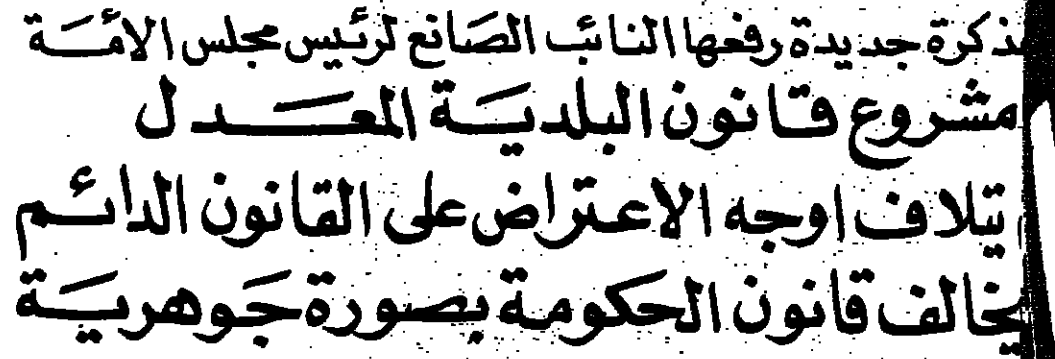 مذكرة جديدة رفعها النائب الصانع لرئيس مجلس الأمة
مشروع قانون البلدية المعدل
يتلاف اوجه الاعتراض على القانون الدائم
يخالف قانون الحكومة بصورة جوهرية